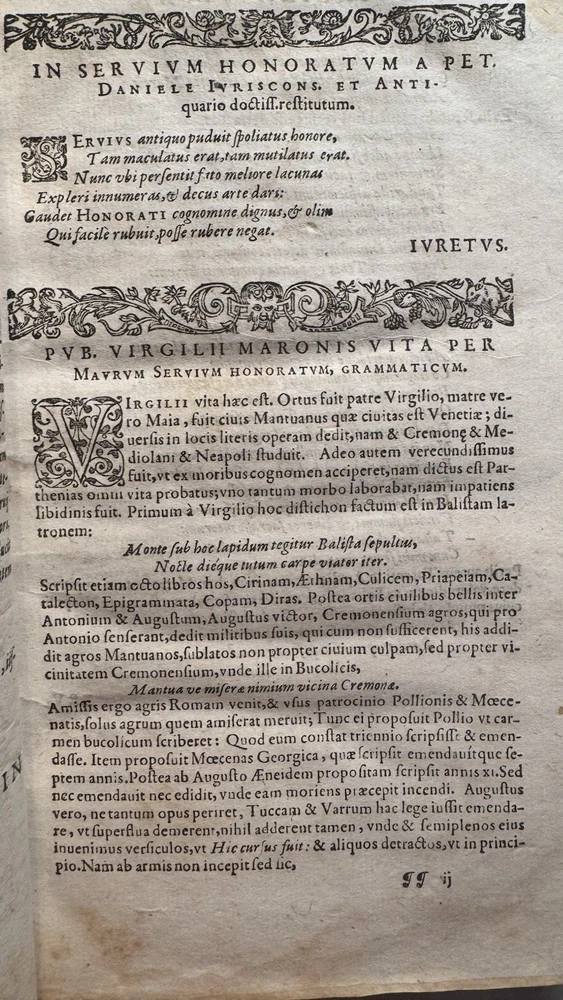 IN SERVIVM HONORATVM A PET.
DANIELE IVRISCONS. ET ANTI-
quario doctiss. restitutum.
SERVIVS antiquo puduit spoliatus honore,
Tam maculatus erat, tam mutilatus erat.
Nunc vbi persentit fato meliore lacunas
Expleri innumeras, & decus arte dari:
Gaudet HONORATI cognomine dignus, & olim
Qui facilè rubuit, posse rubere negat.
IVRETVS.
PVB. VIRGILII MARONIS VITA PER
MAVRVM SERVIVM HONORATVM, GRAMMATICVM.
VIRGILII vita hæc est. Ortus fuit patre Virgilio, matre ve-
ro Maia, fuit ciuis Mantuanus quæ ciuitas est Venetiæ; di-
uersis in locis literis operam dedit, nam & Cremonę & Me-
diolani & Neapoli studuit. Adeo autem verecundissimus
fuit, vt ex moribus cognomen acciperet, nam dictus est Par-
thenias omni vita probatus; vno tantum morbo laborabat, nam impatiens
libidinis fuit. Primum à Virgilio hoc distichon factum est in Balistam la-
tronem:
Monte sub hoc lapidum tegitur Balista sepultus,
Nocte dieque tutum carpe viator iter.
Scripsit etiam octo libros hos, Cirinam, Æthnam, Culicem, Priapeiam, Ca-
talecton, Epigrammata, Copam, Diras. Postea ortis ciuilibus bellis inter
Antonium & Augustum, Augustus victor, Cremonensium agros, qui pro
Antonio senserant, dedit militibus suis, qui cum non sufficerent, his addi-
dit agros Mantuanos, sublatos non propter ciuium culpam, sed propter vi-
cinitatem Cremonensium, vnde ille in Bucolicis,
Mantua ve miseræ nimium vicina Cremonæ.
Amissis ergo agris Romam venit, & vsus patrocinio Pollionis & Mœce-
natis, solus agrum quem amiserat meruit; Tunc ei proposuit Pollio vt car-
men bucolicum scriberet: Quod eum constat triennio scripsisse & emen-
dasse. Item proposuit Mœcenas Georgica, quæ scripsit emendauitque se-
ptem annis. Postea ab Augusto Æneidem propositam scripsit annis xi. Sed
nec emendauit nec edidit, vnde eam moriens præcepit incendi. Augustus
vero, ne tantum opus periret, Tuccam & Varrum hac lege iussit emenda-
re, vt superflua demerent, nihil adderent tamen, vnde & semiplenos eius
inuenimus versiculos, vt Hic cursus fuit: & aliquos detractos, vt in princi-
pio. Nam ab armis non incepit sed sic,
¶¶ ij